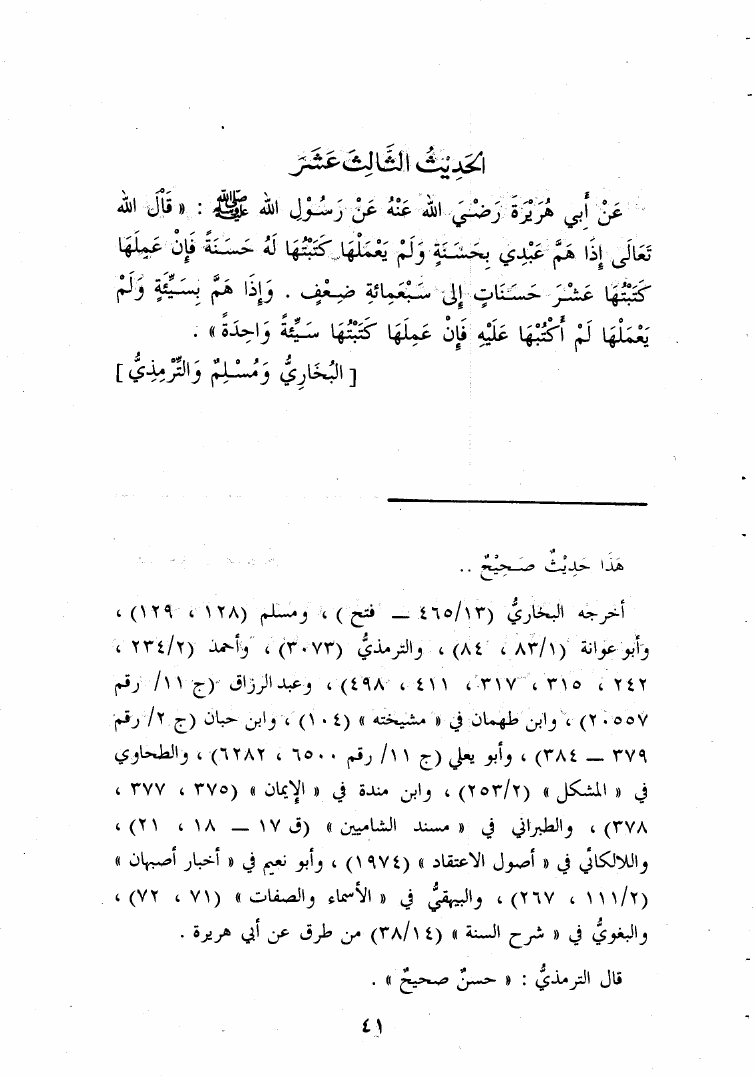 الحَدِيْثُ الثَّالِثَ عَشَرَ
عَنْ أَبِي هُرَيْرَةَ رَضْيَ الله عَنْهُ عَنْ رَسُوْلِ الله ﷺ : « قَالَ الله
تَعَالَى إِذَا هَمَّ عَبْدِي بِحَسَنَةٍ وَلَمْ يَعْمَلْهَا كَتَبْتُهَا لَهُ حَسَنَةً فَإِنْ عَمِلَهَا
كَتَبْتُهَا عَشْرَ حَسَنَاتٍ إِلَى سَبْعَمِائَةِ ضِعْفٍ . وَإِذَا هَمَّ بِسَيِّئَةٍ وَلَمْ
يَعْمَلْهَا لَمْ أَكْتُبْهَا عَلَيْهِ فَإِنْ عَمِلَهَا كَتَبْتُهَا سَيِّئَةً وَاحِدَةً » .
[ البُخَارِيُّ وَمُسْلِمٌ وَالتِّرْمِذِيُّ ]
هَذَا حَدِيْثٌ صَحِيْحٌ ..
أخرجه البخاريُّ (٤٦٥/١٣ — فتح ) ، ومسلم (١٢٨ ، ١٢٩) ،
وأبو عوانة (٨٣/١ ، ٨٤) ، والترمذيُّ (٣٠٧٣) ، وأحمدُ (٢٣٤/٢ ،
٢٤٢ ، ٣١٥ ، ٣١٧ ، ٤١١ ، ٤٩٨) ، وعبد الرزاق (ج ١١/ رقم
٢٠٥٥٧) ، وابن طهمان في « مشيخته » (١٠٤) ، وابن حبان (ج ٢/ رقم
٣٧٩ — ٣٨٤) ، وأبو يعلي (ج ١١/ رقم ٦٥٠٠ ، ٦٢٨٢) ، والطحاوي
في « المشكل » (٢٥٣/٢) ، وابن مندة في « الإيمان » (٣٧٥ ، ٣٧٧ ،
٣٧٨) ، والطبراني في « مسند الشاميين » (ق ١٧ — ١٨ ، ٢١) ،
واللالكائي في « أصول الاعتقاد » (١٩٧٤) ، وأبو نعيم في « أخبار أصبهان »
(١١١/٢ ، ٢٦٧) ، والبيهقيُّ في « الأسماء والصفات » (٧١ ، ٧٢) ،
والبغويُّ في « شرح السنة » (٣٨/١٤) من طرق عن أبي هريرة .
قال الترمذيُّ : « حسنٌ صحيحٌ » .
٤١